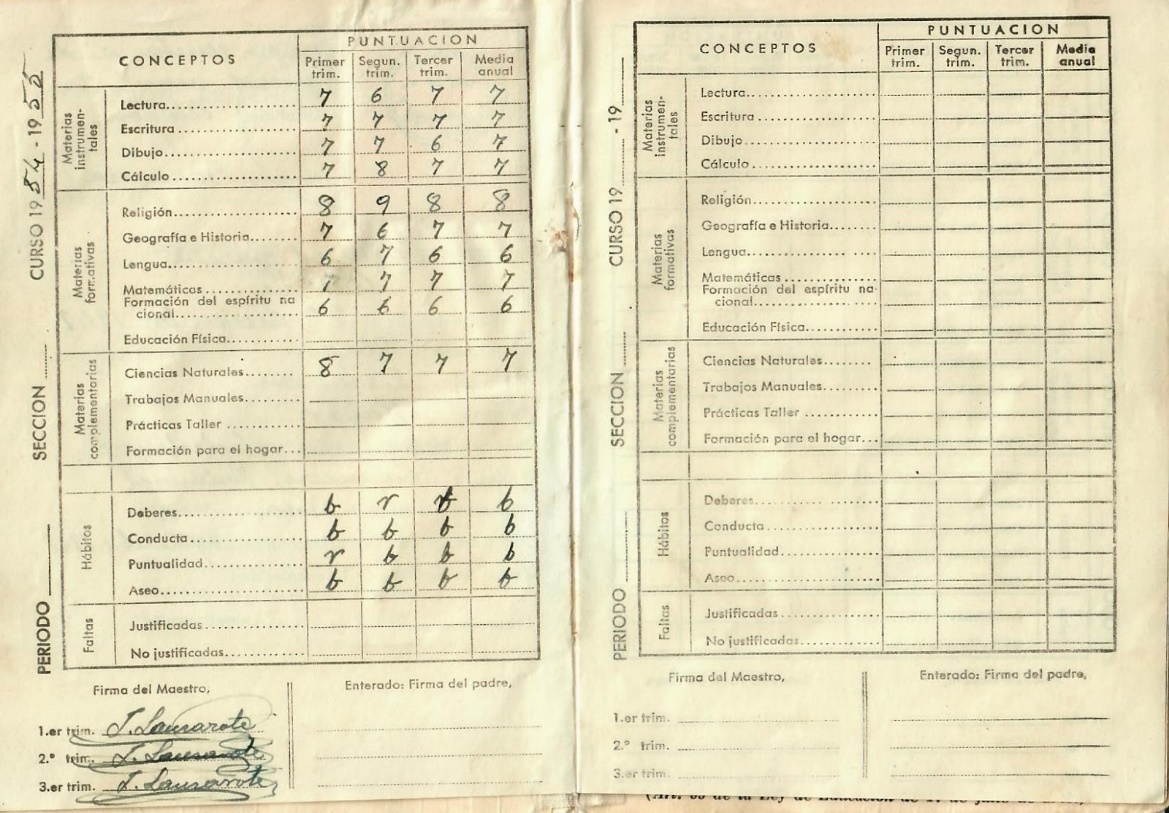 PUNTUACION
CONCEPTOS Primer trim. Segun. trim. Tercer trim. Media anual
CURSO 1954 - 1955
SECCION
PERIODO
Materias instrumen-tales
Lectura 7 6 7 7
Escritura 7 7 7 7
Dibujo 7 7 6 7
Cálculo 7 8 7 7
Materias formativas
Religión 8 9 8 8
Geografía e Historia 7 6 7 7
Lengua 6 7 6 6
Matemáticas 7 7 7
Formación del espíritu na
cional 6 6 6 6
Educación Física
Materias complementarias
Ciencias Naturales 8 7 7 7
Trabajos Manuales
Prácticas Taller
Formación para el hogar
Hábitos
Deberes b r b b
Conducta b b b b
Puntualidad r b b b
Aseo b b b b
Faltas
Justificadas
No justificadas
Firma del Maestro, Enterado: Firma del padre,
1.er trim.
2.º trim.
3.er trim.
PUNTUACION
CONCEPTOS Primer trim. Segun. trim. Tercer trim. Media anual
CURSO 19 - 19
SECCION
PERIODO
Materias instrumen-tales
Lectura
Escritura
Dibujo
Cálculo
Materias formativas
Religión
Geografía e Historia
Lengua
Matemáticas
Formación del espíritu na-
cional
Educación Física
Materias complementarias
Ciencias Naturales
Trabajos Manuales
Prácticas Taller
Formación para el hogar
Hábitos
Deberes
Conducta
Puntualidad
Aseo
Faltas
Justificadas
No justificadas
Firma del Maestro, Enterado: Firma del padre,
1.er trim.
2.º trim.
3.er trim.